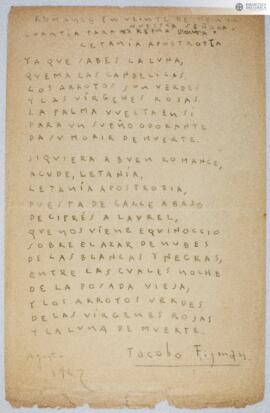 ROMANCE EN VEINTE DE
NUESTRA SEÑORA
CUANTIA PARA
LETANIA APOSTROFIA
YA QUE SABES LA LUNA,
QUEMA LAS CANDELICAS.
LOS ARROYOS SON VERDES
Y LAS VÍRGENES ROSAS.
LA PALMA VUELTA EN SI
PARA UN SUEÑO ODORANTE
DA SU MORIR DE MUERTE.
SIQUIERA A BUEN ROMANCE,
ACUDE, LETANIA,
LETANÍA APOSTROFIA,
PUESTA DE CALLE ABAJO
DE CIPRÉS A LAUREL,
QUE NOS VIENE EQUINOCCIO
SOBRE EL AZAR DE NUBES
DE LAS BLANCAS Y NEGRAS,
ENTRE LAS CUALES NOCHE
DE LA POSADA VIEJA,
Y LOS ARROYOS VERDES
DE LAS VÍRGENES ROSAS
Y LA LUNA DE MUERTE.
Jacobo Fijman
Agosto